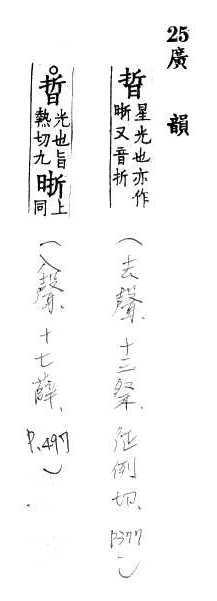 25 廣韻
晢 星光也亦作晣又音折 (去聲、十三祭、征例切、p377)
晢 光也旨熱切九 晣 上同 (入聲、十七薛、P.497)